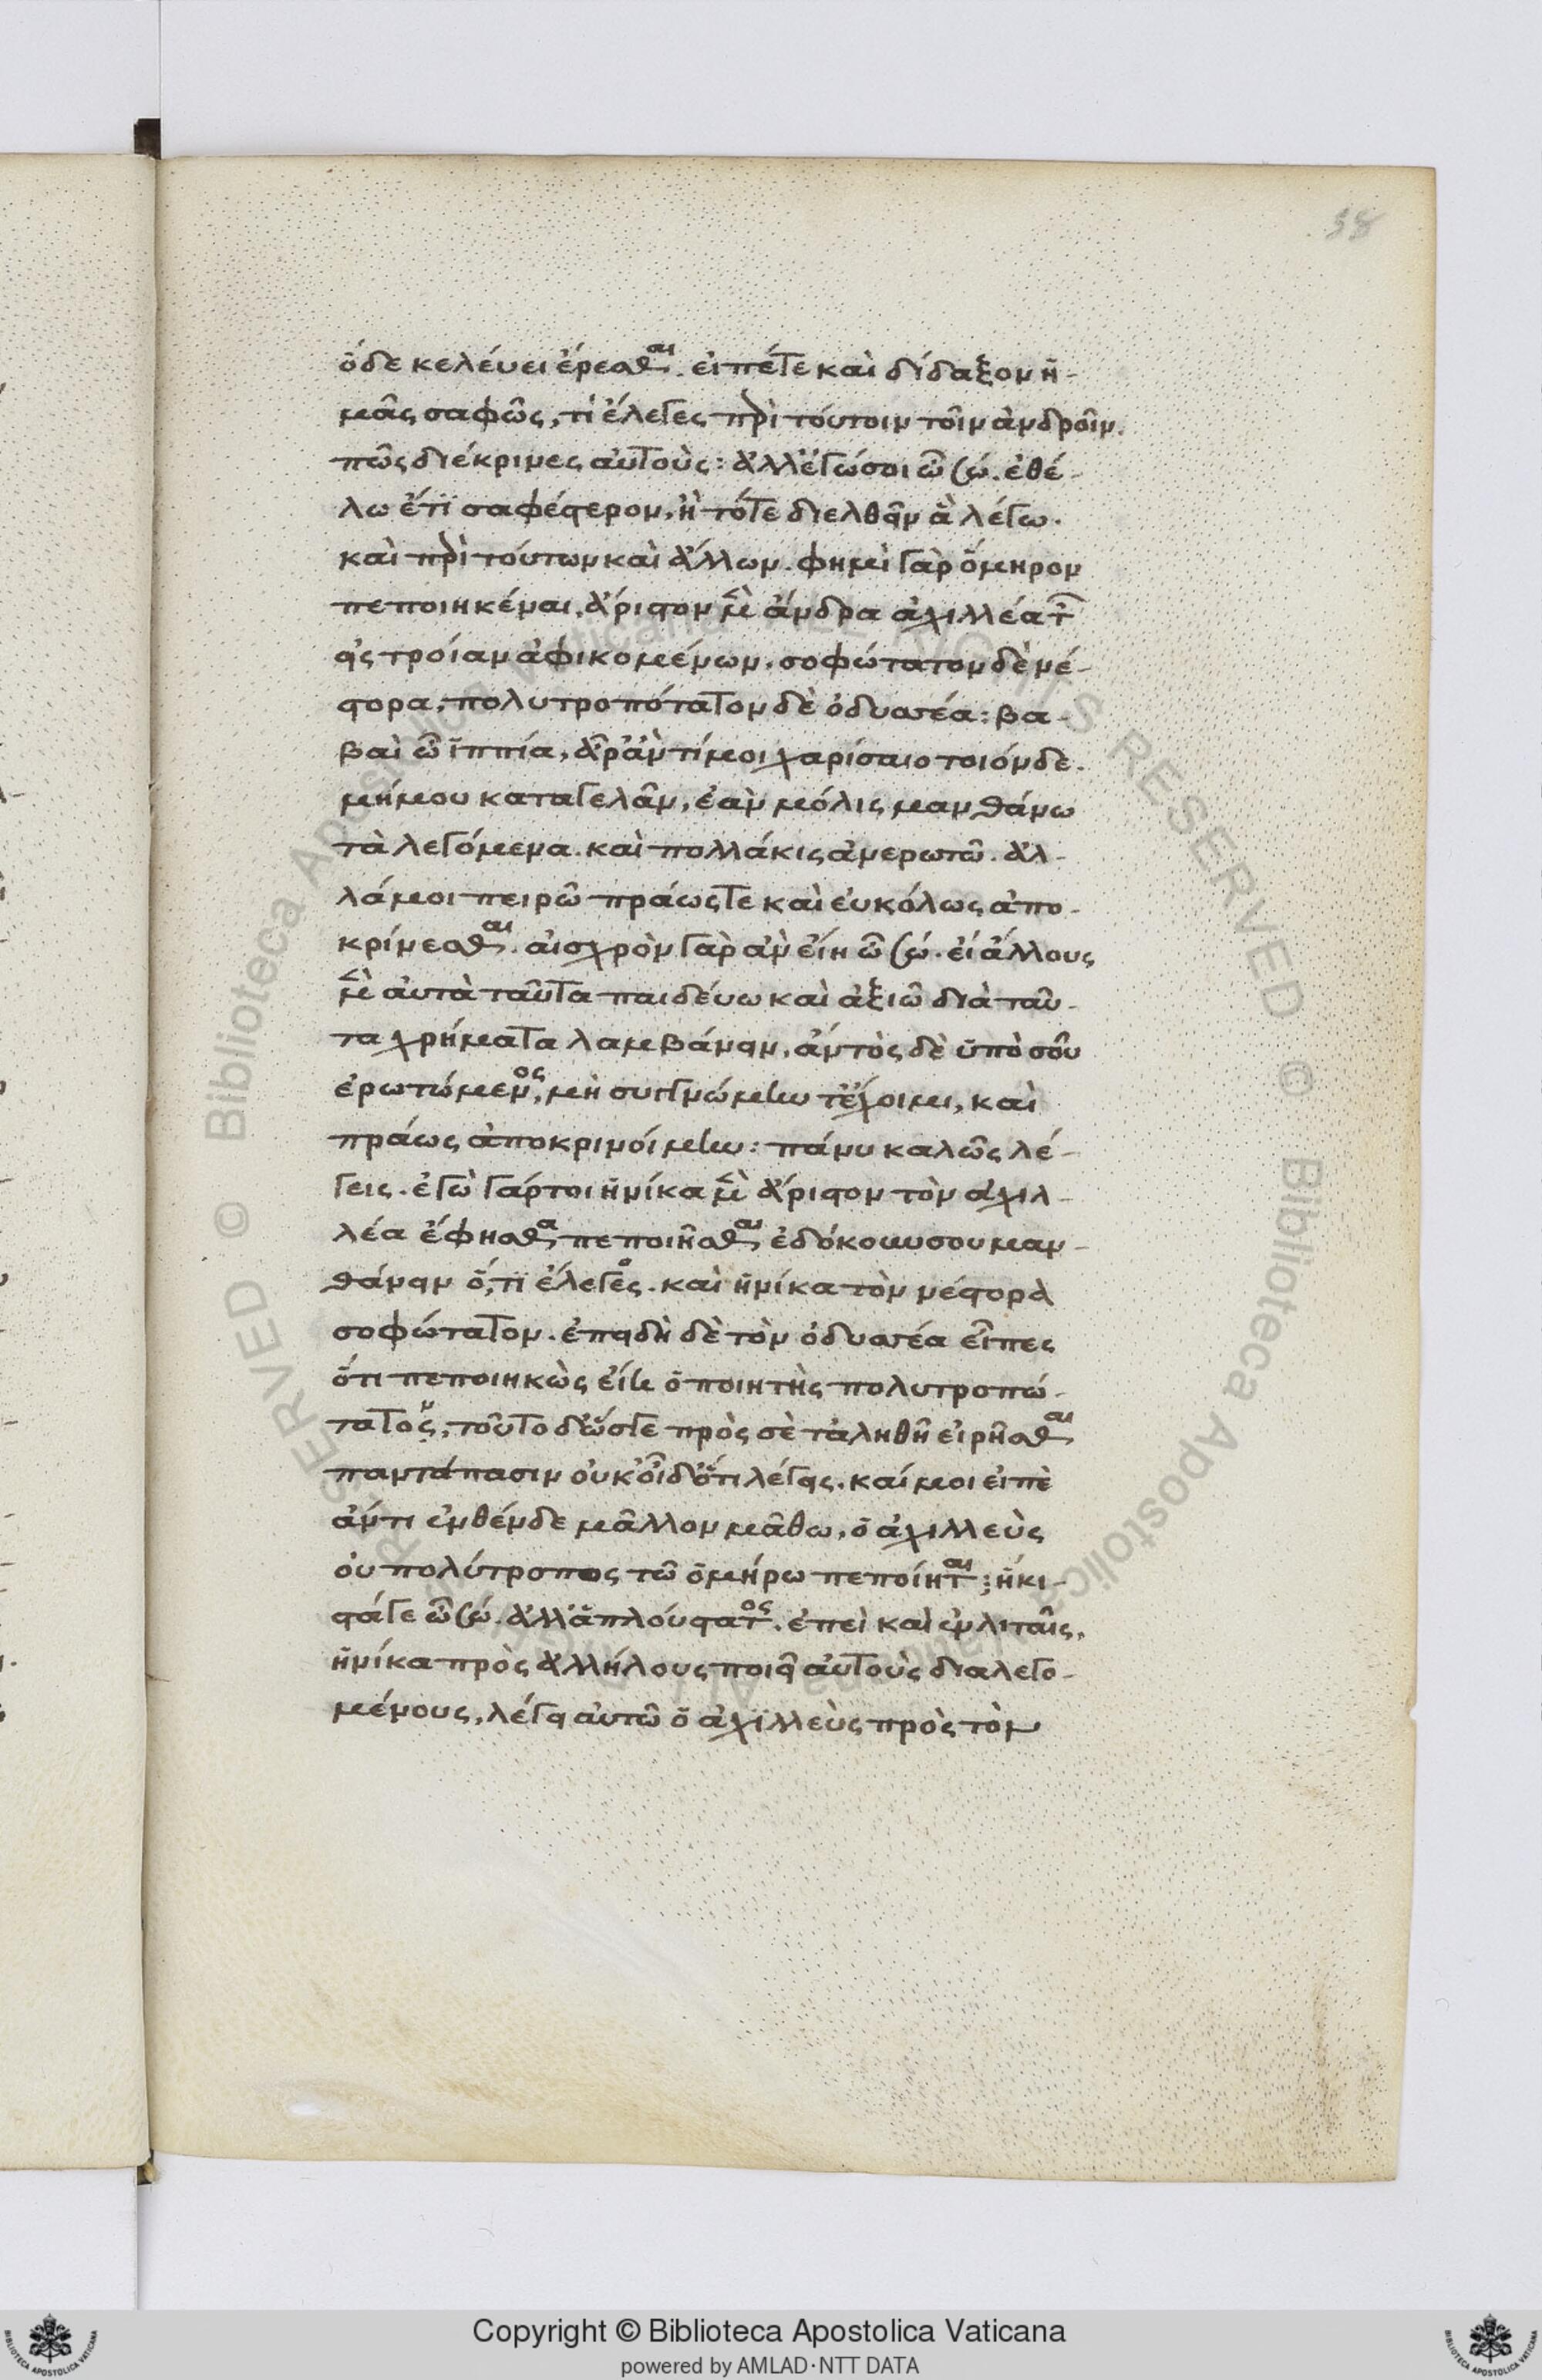 38
ὅδε κελέυει ἐρεσθαι. εἰπέτε καὶ δίδαξον ἡ-
μᾶς σαφῶς, τί ἔλεγες περὶ τούτοιν τοῖν ἀνδροῖν.
πῶς διέκρινες αὐτοὺς: ἀλλ' ἐγώ σοι ὦ Σώ. ἐθέ-
λω ἔτϊ σαφέστερον, ἢ τότε διελθεῖν ἃ λέγω.
καὶ περὶ τούτων καὶ ἄλλων. φημὶ γὰρ ὅμηρον
πεποιηκέναι, ἄριστον μὲν ἄνδρα ἀχιλλέα τῶν
εἰς τροίαν ἀφικομένων. σοφώτατον δὲ νέ-
στορα, πολυτροπότατον δὲ ὀδυσσέα: βα-
βαὶ ὦ ἱππία, ἆρ' ἄν τί μοι χαρίσαιο τοιόνδε.
μή μου καταγελᾶν, ἐὰν μόλις μανθάνω
τὰ λεγόμενα. καὶ πολλάκις ἀνερωτῶ. ἀλ-
λά μοι πειρῶ πράως τε καὶ ἐυκόλως ἀπο-
κρίνεσθαι. αἰσχρὸν γὰρ ἂν εἴη ὦ Σώ. εἰ ἄλλους
μὲν ἀυτὰ ταῦτα παιδέυω καὶ ἀξιῶ διὰ ταῦ-
τα χρήματα λαμβάνειν, ἀυτὸς δὲ ὑπὸ σοῦ
ἐρωτώμενος, μὴ συγγνώμην τ' ἔχοιμι, καὶ
πράως ἀποκρινοίμην: πάνυ καλῶς λέ-
γεις. ἐγὼ γάρ τοι ἡνίκα μὲν ἄριστον τὸν ἀχιλ-
λέα ἔφησθα πεποιῆσθαι ἐδόκουν σου μαν-
θάνειν ὅ,τϊ ἔλεγες. καὶ ἡνίκα τὸν νέστορα
σοφώτατον. ἐπειδὴ δὲ τὸν ὀδυσσέα εἶπες
ὅτι πεποιηκὼς εἴη ὁ ποιητὴς πολυτροπώ-
τατος, τοῦτο δ' ὥστε πρὸς σὲ τἀληθῆ εἰρῆσθαι
παντάπασιν οὐκ οἶδ' ὅτι λέγεις. καί μοι εἰπὲ
ἄν τι ἐνθένδε μᾶλλον μᾶθω, ὁ ἀχιλλεὺς
ὀυ πολύτροπος τῶ ὁμήρω πεποίηται; ἥκι-
στάγε ὦ Σώ. ἀλλ' ἁπλούστατος. ἐπεὶ καὶ ἐν λιταῖς,
ἡνίκα πρὸς ἀλλήλους ποιεῖ αὐτοὺς διαλεγο-
μένους, λέγει ἀυτῶ ὁ ἀχϊλλεὺς πρὸς τὸν
RESERVED © Biblioteca Apostolica Vaticana
Copyright © Biblioteca Apostolica Vaticana
powered by AMLAD·NTT DATA